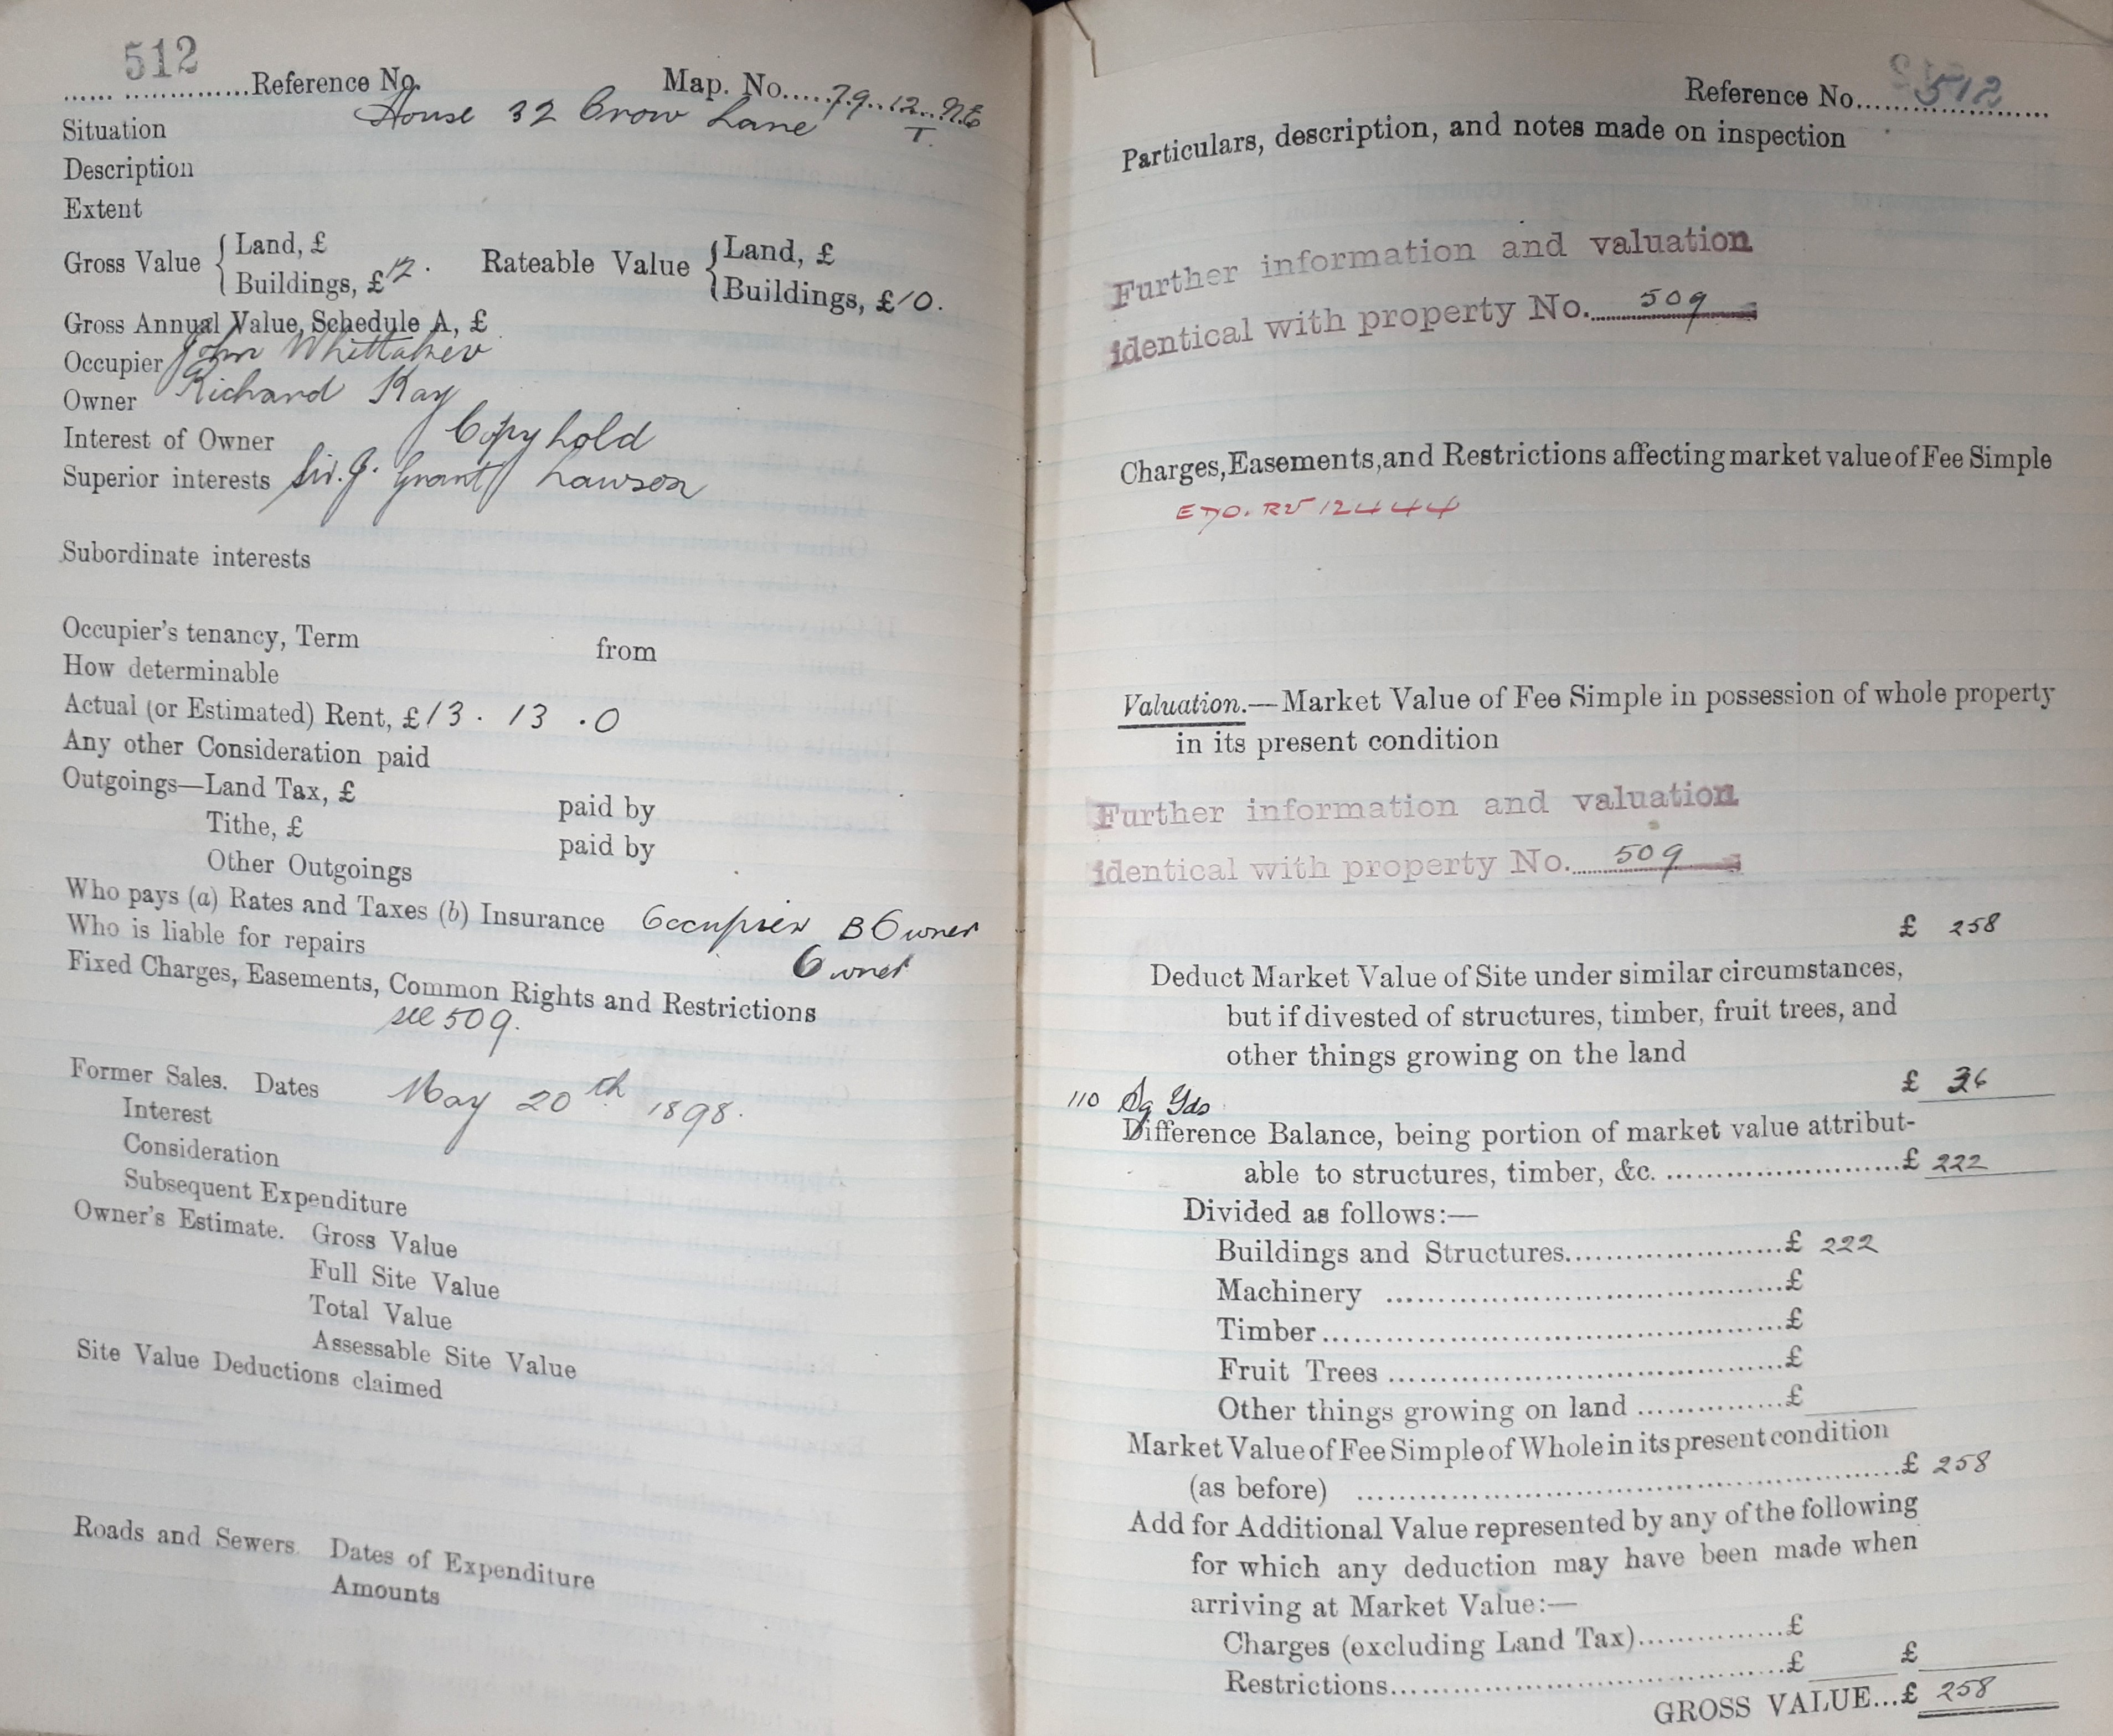 512
...... ...............Reference No. Map. No.....79..12..N.E
Situation House 32 Crow Lane T.
Description
Extent
Gross Value { Land, £ Rateable Value { Land, £
Buildings, £12. Buildings, £10.
Gross Annual Value, Schedule A, £
Occupier John Whittaker
Owner Richard Kay
Interest of Owner Copyhold
Superior interests Sir. J. Grant Lawson
Subordinate interests
Occupier's tenancy, Term from
How determinable
Actual (or Estimated) Rent, £13 . 13 . 0
Any other Consideration paid
Outgoings—Land Tax, £ paid by
Tithe, £ paid by
Other Outgoings
Who pays (a) Rates and Taxes (b) Insurance Occupier B Owner
Who is liable for repairs Owner
Fixed Charges, Easements, Common Rights and Restrictions
see 509.
Former Sales. Dates May 20th 1898.
Interest
Consideration
Subsequent Expenditure
Owner's Estimate. Gross Value
Full Site Value
Total Value
Assessable Site Value
Site Value Deductions claimed
Roads and Sewers. Dates of Expenditure
Amounts
Reference No. 512
Particulars, description, and notes made on inspection
Further information and valuation
identical with property No. 509
Charges, Easements, and Restrictions affecting market value of Fee Simple
Valuation.—Market Value of Fee Simple in possession of whole property
in its present condition
Further information and valuation
identical with property No. 509
£ 258
Deduct Market Value of Site under similar circumstances,
but if divested of structures, timber, fruit trees, and
other things growing on the land
110 Sq Yds £ 36
Difference Balance, being portion of market value attribut-
able to structures, timber, &c. ........................£ 222
Divided as follows:—
Buildings and Structures......................£ 222
Machinery ........................................£
Timber..............................................£
Fruit Trees ........................................£
Other things growing on land ...............£
Market Value of Fee Simple of Whole in its present condition
(as before) ......................................................£ 258
Add for Additional Value represented by any of the following
for which any deduction may have been made when
arriving at Market Value:—
Charges (excluding Land Tax)...............£
Restrictions........................................£ £
GROSS VALUE...£ 258